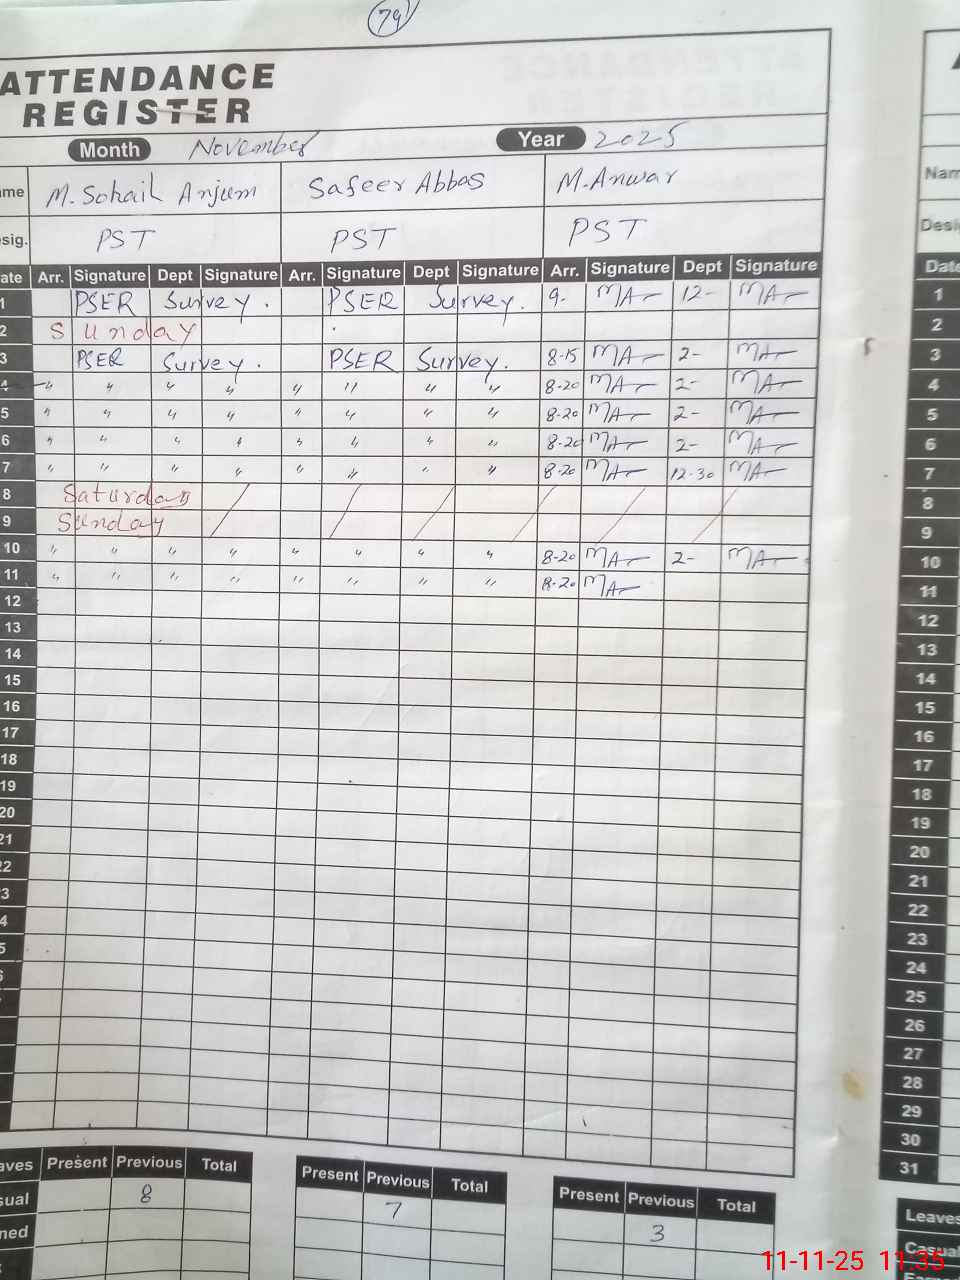 79
ATTENDANCE
REGISTER
Month November Year 2025
ame M. Sohail Anjum Safeer Abbas M. Anwar Nam
sig. PST PST PST Desig
ate Arr. Signature Dept Signature Arr. Signature Dept Signature Arr. Signature Dept Signature Date
1 PSER Survey. PSER Survey. 9- MAr 12- MAr 1
2 Sunday 2
3 PSER Survey. PSER Survey. 8-15 MAr 2- MAr 3
4 " " " " " " " " 8-20 MAr 2- MAr 4
5 " " " " " " " " 8-20 MAr 2- MAr 5
6 " " " " " " " " 8-20 MAr 2- MAr 6
7 " " " " " " " " 8-20 MAr 12-30 MAr 7
8 Saturday 8
9 Sunday 9
10 " " " " " " " " 8-20 MAr 2- MAr 10
11 " " " " " " " " 8-20 MAr 11
12 12
13 13
14 14
15 15
16 16
17 17
18 18
19 19
20 20
21 21
22 22
3 23
4 24
5 25
26
27
28
29
30
31
aves Present Previous Total Present Previous Total Present Previous Total Leaves
sual 8 7 3 Casual
ned
11-11-25 11:35